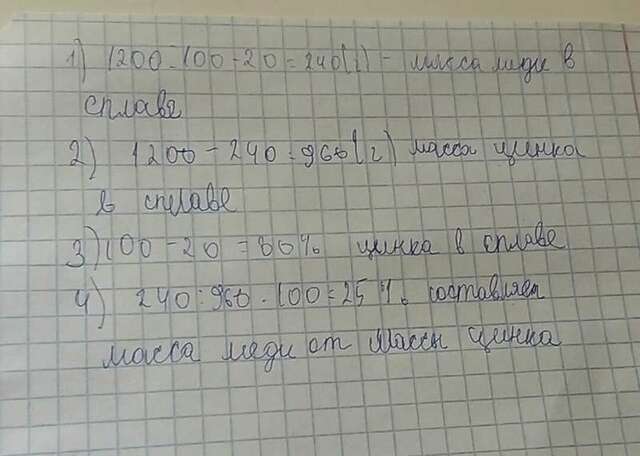 1) 1200 : 100 · 20 = 240 (г) - масса меди в
сплаве
2) 1200 - 240 = 960 (г) масса цинка
в сплаве
3) 100 - 20 = 80% цинка в сплаве
4) 240 : 960 · 100 = 25% составляет
масса меди от массы цинка